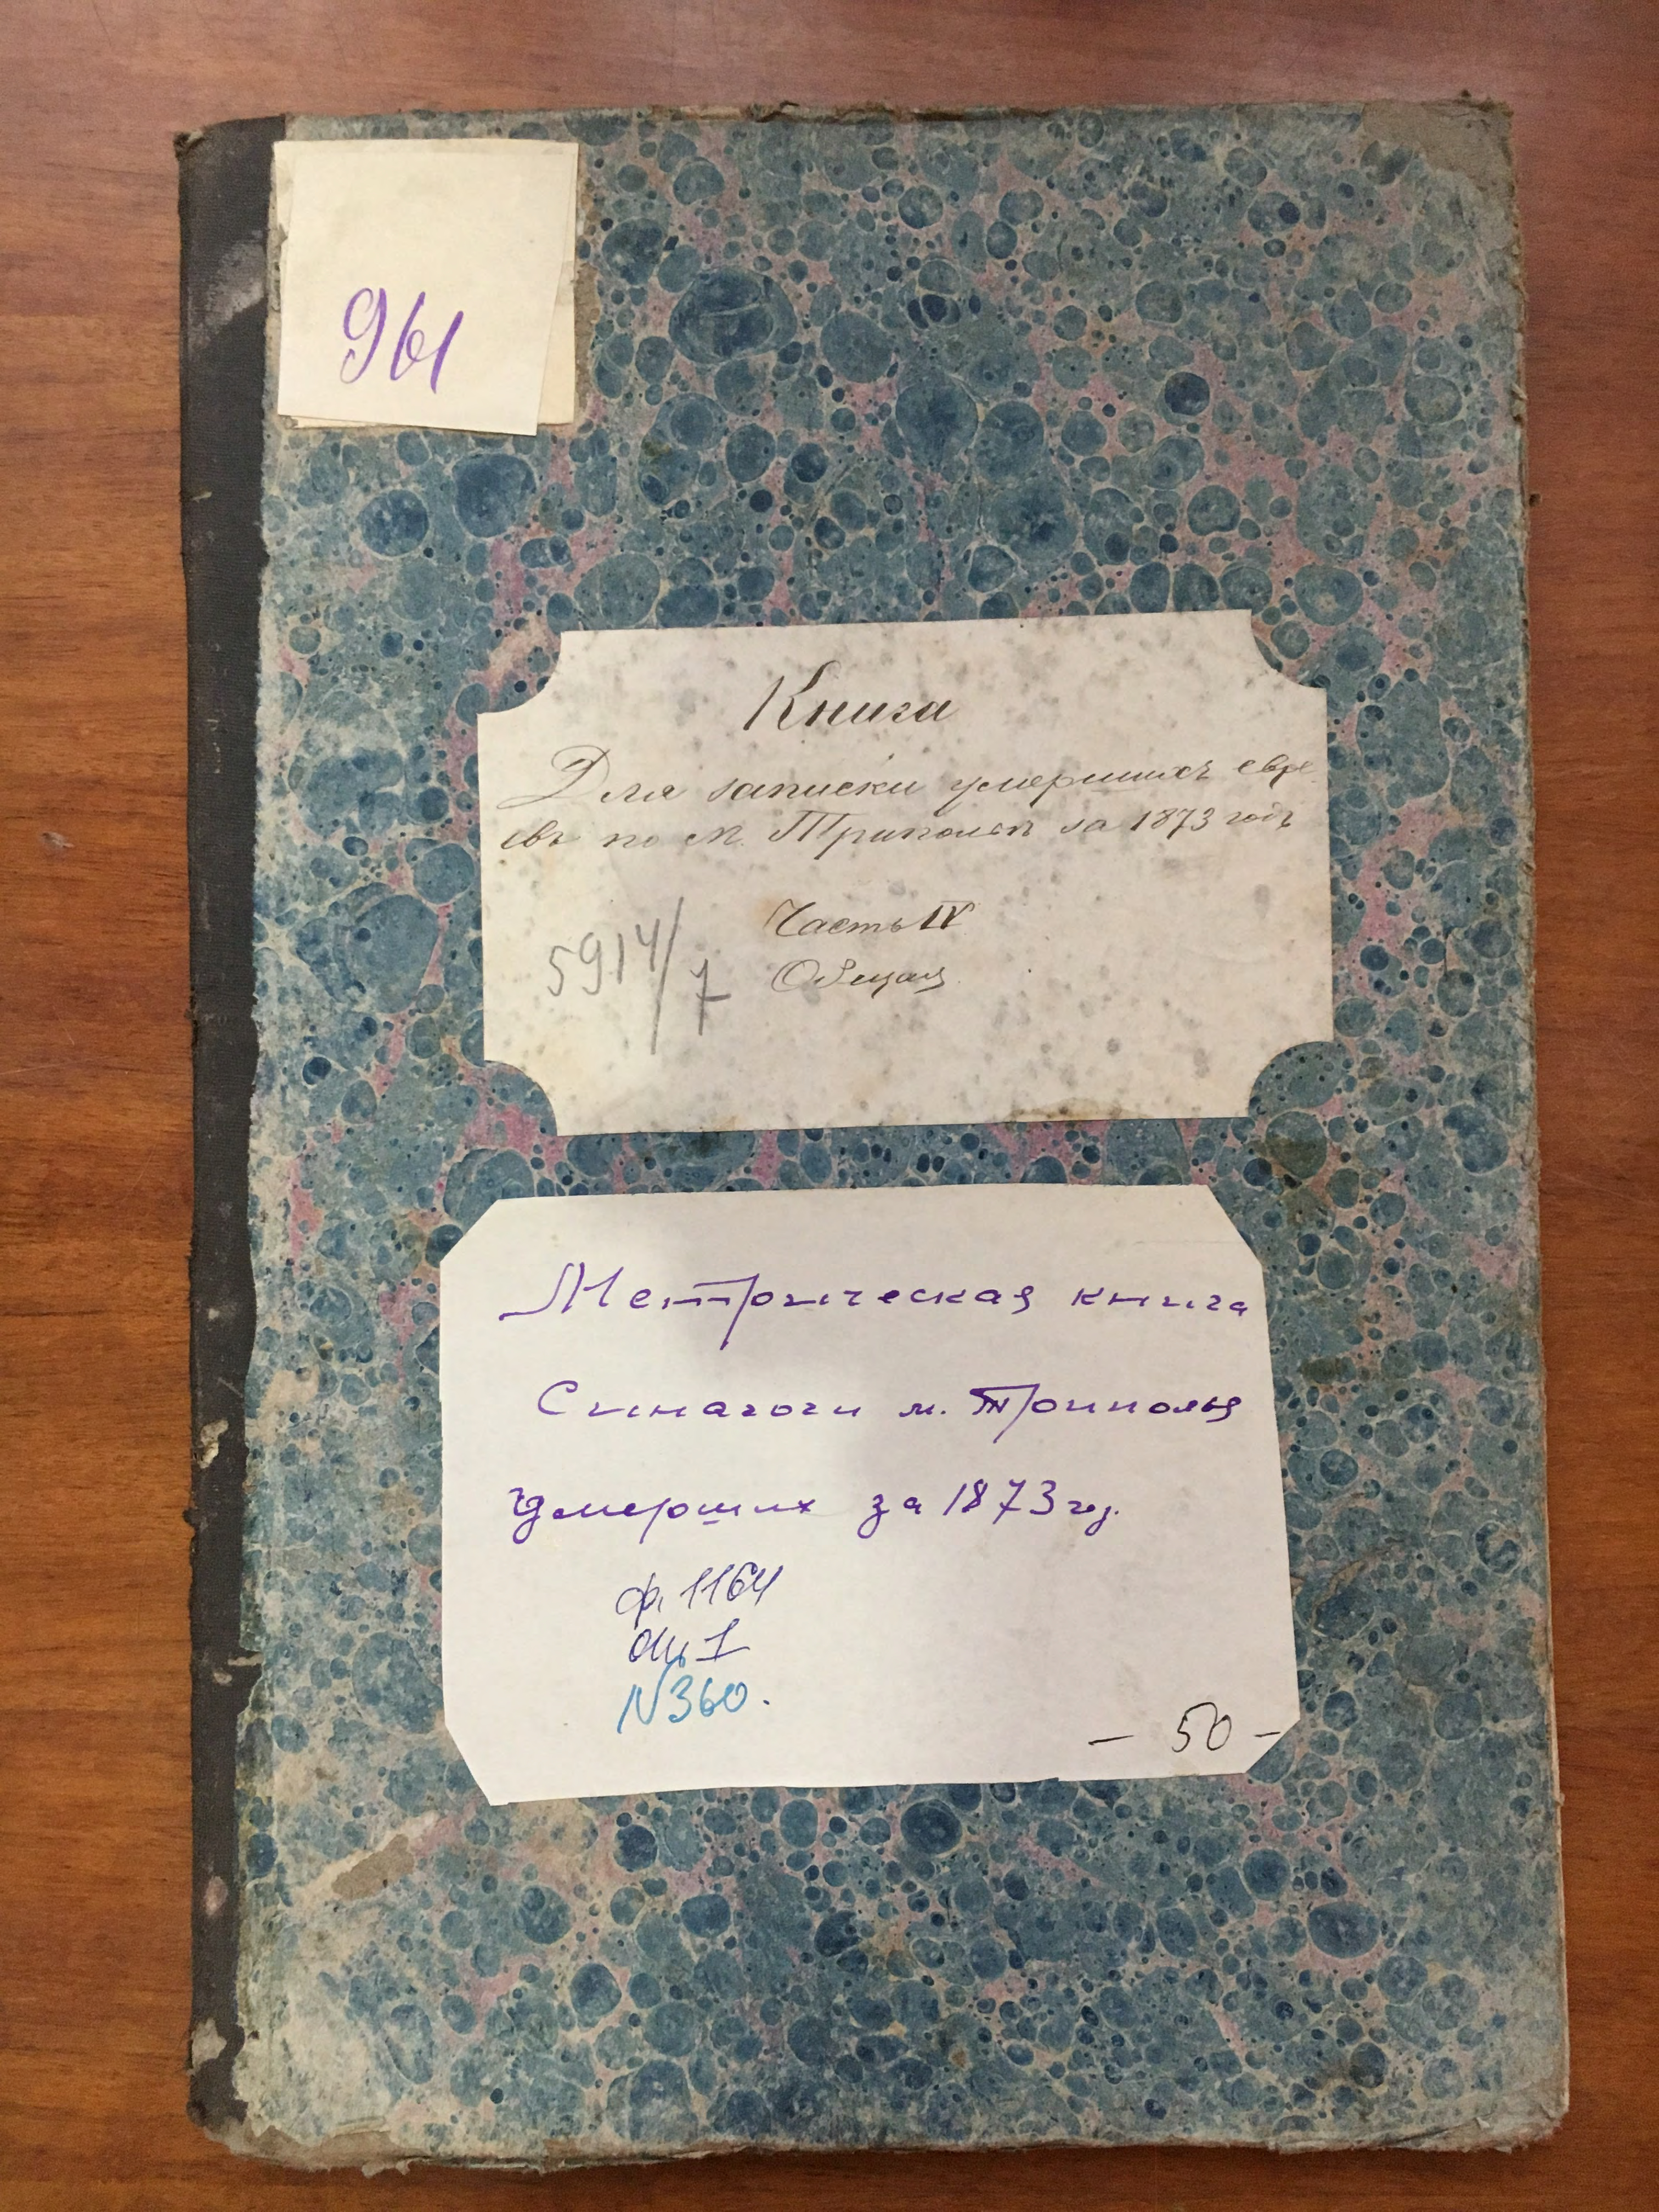 961
Книга
Для записки умершихъ евре
евъ по м. Триполью за 1873 годъ
Часть IV
Общая
5914/7
Метрическая книга
Синагоги м. Триполья
умерших за 1873 год.
ф. 1164
оп. 1
N360.
– 50 –